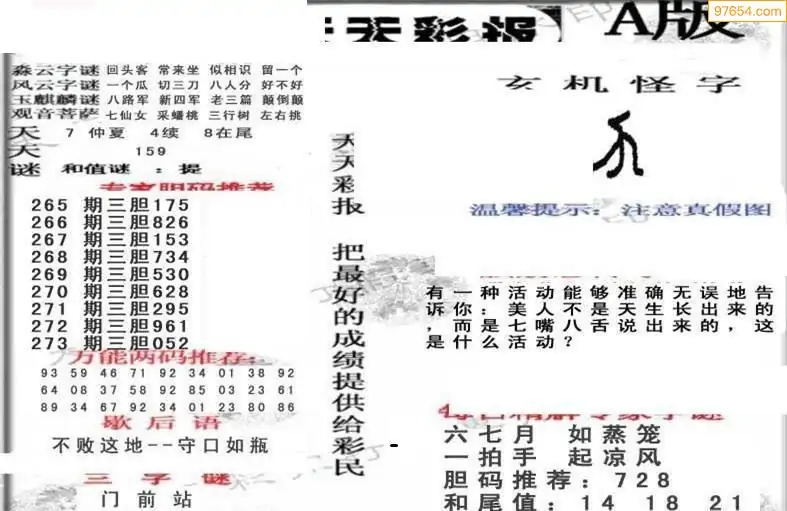 97654.com
天天彩报 A版
森云字谜 回头客 常来坐 似相识 留一个
风云字谜 一个瓜 切三刀 八人分 好不好
玉麒麟谜 八路军 新四军 老三篇 颠倒颠
观音菩萨 七仙女 采蟠桃 三行树 左右挑
天 7 仲夏 4续 8在尾
天 159
谜 和值谜 : 提
专家胆码推荐
265 期三胆175
266 期三胆826
267 期三胆153
268 期三胆734
269 期三胆530
270 期三胆628
271 期三胆295
272 期三胆961
273 期三胆052
万能两码推荐:
93 59 46 71 92 34 01 38 92
64 08 37 58 92 85 03 23 61
89 34 67 92 34 01 23 80 86
歇后语
不败这地--守口如瓶
三字谜
门前站
天天彩报 把最好的成绩提供给彩民
玄机怪字
温馨提示: 注意真假图
有一种活动能够准确无误地告
诉你: 美人不是天生长出来的
, 而是七嘴八舌说出来的, 这
是什么活动?
六七月 如蒸笼
一拍手 起凉风
胆码推荐: 728
和尾值: 14 18 21